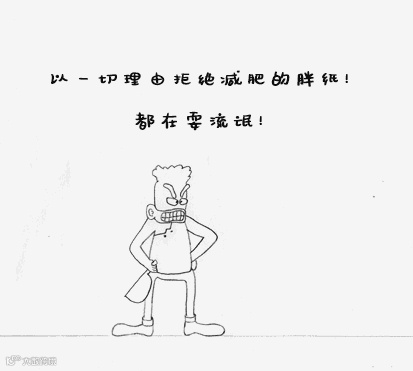 以一切理由拒绝减肥的胖纸!
都在耍流氓!